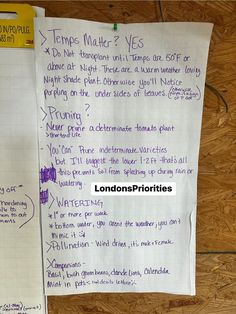 N/PO/PULG.
585 m²)
> Temps Matter? YES
* Do Not transplant until Temps are 50°F or
above at Night. These are a warm weather loving
Night Shade plant. Otherwise you'll Notice
purpling on the under sides of leaves. (otherwise
> Pruning?
Never prune a determinate tomato plant
> Shortens Life
> You "Can" Prune indeterminate Varieties
but I'll suggest the lower 1-2 ft thats all
this prevents soil from splashing up during rain or
watering.
LondonsPriorities
> WATERING
* 1" or more per week
* bottom water, you arent the weather, you can't
mimic it
> Pollination - Wind driven, its male & female
> Companions -
Basil, bush green beans, dandelions, Calendula
Mint in pots